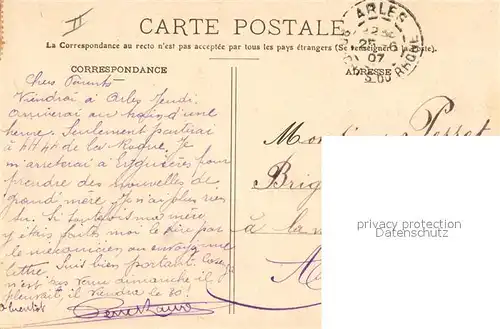 II
CARTE POSTALE
La Correspondance au recto n'est pas acceptée par tous les pays étrangers (Se renseigner à la Poste).
CORRESPONDANCE
ADRESSE
ARLES
25-6
07
RHONE
Chers Parents
Viendrai à Arles Jeudi.
arriverai au train d'une
heure. Seulement partirai
à de la Roque. Je
m'arreterai à Eyguières pour
prendre des nouvelles de
grand mère. Je n'ai plus rien
su. Si toutefois ma mère
y étais faites moi le dire par
le mécanicien ou envoyé une
lettre. Suis bien portant.
n'est pas venu dimanche, il
pleuvait, il viendra le 30!
Monsieur Perret
Brig
à la
privacy protection
Datenschutz